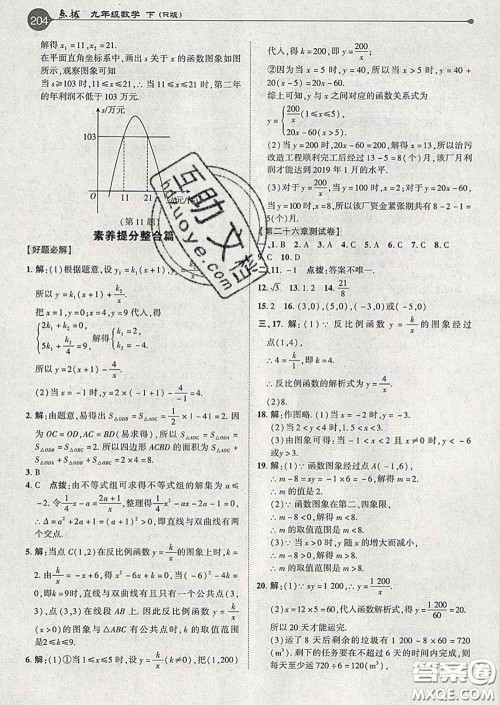 204 点拨 九年级数学 下(R版)
解得 x₁=11,x₂=21.
在平面直角坐标系中,画出 s 关于 x 的函数图象如图
所示,观察图象可知
当 s≥103 时,11≤x≤21.∴当 11≤x≤21 时,第二年
的年利润不低于 103 万元.
s/万元
103
O 11 21 x/(元/件)
(第 11 题)
素养提分整合篇
【好题必解】
1. 解:(1)根据题意,设 y₁=k₁(x+1),
所以 y=k₁(x+1)+k₂/x.
把 x=1,y=0;x=4,y=9 代入,得
{2k₁+k₂=0, 5k₁+k₂/4=9, 解得
所以 y=2(x+1)-4/x.
(2)当 x=
2. 解:由题意,易得出 S△ODB=S△AOC=1/2×|-4|=2.
因为 OC=OD,AC=BD(易求出),所以 S△AOC=
S△ODA=S△ODB=S△OBC=2.所以四边形 ACBD 的面积=
S△AOC+S△ODA+S△ODB+S△OBC=2×4=8.
3. B
4. C 点拨:由不等式组可求得不等式组的解集为 a≤
-2.令 1/4x-a=(2a+1)/x,整理得 1/4x²-ax-2a-1=0,
∴Δ=a²+2a+1=(a+1)²>0,即直线与双曲线有两个
交点.
5. 解:当点 C(1,2)在反比例函数 y=k/x 的图象上时,k=
2.由 k/x=-x+6,得 x²-6x+k=0.当(-6)²-4k=0
时,k=9,此时直线与双曲线有且只有一个公共点(3,
3),点(3,3)在线段 AB 上.因此当反比例函数 y=k/x
(x>0)的图象与△ABC 有公共点时,k 的取值范围
是2≤k≤9.
6. 解:(1)①当1≤x≤5时,设 y=k/x(k≠0),把(1,200)
代入,得 k=200,即 y=200/x;
②因为当 x=5 时,y=40,所以当 x>5 时,y=40+
20(x-5)=20x-60.
综上可知,y 与 x 之间对应的函数关系式为
y={200/x(1≤x≤5), 20x-60(x>5).
(2)当 y=200 时,20x-60=200,解得 x=13,所以治污
改造工程顺利完工后经过 13-5=8(个)月,该厂月利
润才能达到 2019 年 1 月的水平.
(3)对于 y=200/x,当 y=100 时,x=2;对于 y=20x-
60,当 y=100 时,x=8,所以该厂资金紧张期共有 8-2-1=
5(个)月.
【第二十六章测试卷】
9. C 10. D
二、11. -1 点拨:答案不唯一.
12. √3 13. 1.2 14. 21/8
15. 2 16. (3,0),(-3,0),(5,0)或(-5,0)
三、17. 解:(1)∵反比例函数 y=k/x 的图象经过
点(1,4),
∴4=k/1,即 k=4.
∴反比例函数的解析式为 y=4/x.
(2)8.
18. 解:作图略.(1)当 x=-2 时,y=3.
(2)当-3<x<-1 时,2<y<6.
(3)当-3<y<2,且 y≠0 时,x 的取值范围为 x<-6
或 x>3.
19. 解:(1)∵函数图象经过点 A(-1,6),
∴m-8=-6,解得 m=2.
∴m 的值是 2.
(2)∵函数图象在第二、四象限,
∴m-8<0,解得 m<8.
∴m 的取值范围是 m<8.
(3)∵当 x>0 时,y 随 x 的增大而减小,
∴m-8>0,解得 m>8.
∴m 的取值范围是 m>8.
20. 解:(1)∵xy=1 200,∴y=1 200/x.
(2)x=12×5=60,代入函数解析式,得 y=1 200/60=20.
所以 20 天才能运完.
(3)运了 8 天后剩余的垃圾有 1 200-8×60=
720(m³),剩下的任务要在不超过 6 天的时间完成,则
每天至少运 720÷6=120(m³),
互助文档
hdzuoye.com
答案圈
MXQE.COM